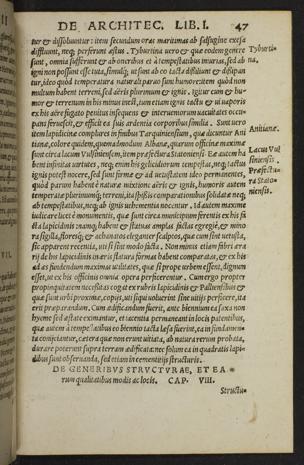 DE ARCHITEC. LIB. I. 47
tur & dissoluuntur: item secundum oras maritimas ab salsugine exesa
diffluunt, neq; perferunt æstus. Tyburtina uero & quæ eodem genere
sunt, omnia sufferunt & ab oneribus et à tempestatibus iniurias, sed ab
igni non possunt esse tuta, simulq; ut sunt ab eo tacta dissiliunt & dissipan
tur, ideo quòd temperatura naturali paruo sunt humore item quòd non
multum habent terreni, sed aëris plurimum & ignis. Igitur cum & hu-
mor & terrenum in his minus inest, tum etiam ignis tactu & ui uaporis
ex his aëre fugato penitus insequens & interueniorum uacuitates occu-
pans feruescit, & efficit ea suis ardentia corporibus similia. Sunt uero
item lapidicinæ complures in finibus Tarquiniensium, quæ dicuntur Ani
tianæ, colore quidem, quemadmodum Albanæ, quarum officinæ maximæ
sunt circa lacum Vulsiniensem, item præfectura Statoniensi. Eæ autem ha
bent infinitas uirtutes, neq; enim his gelicidiorum tempestas, neq; tactus
ignis potest nocere, sed sunt firmæ & ad uetustatem ideo permanentes,
quòd parum habent è naturæ mixtione aëris & ignis, humoris autem
temperatæ plurimumq; terreni, ita spissis compactionibus solidatæ neq;
ab tempestatibus, neq; ab ignis uehementia nocentur. Id autem maxime
iudicare licet è monumentis, quæ sunt circa municipium ferentis ex his fa
cta lapidicinis: namq; habent & statuas amplas factas egregiè, & mino
ra sigilla, floresq; & achantos eleganter scalptos, quæ cum sint uetusta,
sic apparent recentia, uti si sint modo facta. Non minus etiam fabri æra
rij de his lapidicinis in æris flatura formas habent comparatas, & ex his
ad æs fundendum maximas utilitates, quæ si prope urbem essent, dignum
esset, ut ex his officinis omnia opera perficerentur. Cum ergo propter
propinquitatem necessitas cogat ex rubris lapidicinis & Pallensibus &
quæ sunt urbi proximæ, copijs, uti siqui uoluerint sine uitijs perficere, ita
erit præparandum. Cum ædificandum fuerit, ante biennium ea saxa non
hyeme sed æstate eximantur, et iacentia permaneant in locis patentibus,
quæ autem à tempestatibus eo biennio tacta læsa fuerint, ea in fundamen-
ta coniiciantur, cetera quæ non erunt uitiata, ab natura rerum probata,
durare poterunt supra terram ædificata: nec solum ea in quadratis lapi-
dibus sunt obseruanda, sed etiam in cæmentitijs structuris.
Tyburti-
na.
Anitianæ.
Lacus Vul
siniensis.
Præfectu-
ra Stato-
niensis.
DE GENERIBVS STRVCTVRAE, ET EA-
rum qualitatibus modis ac locis. CAP. VIII.
Structu-